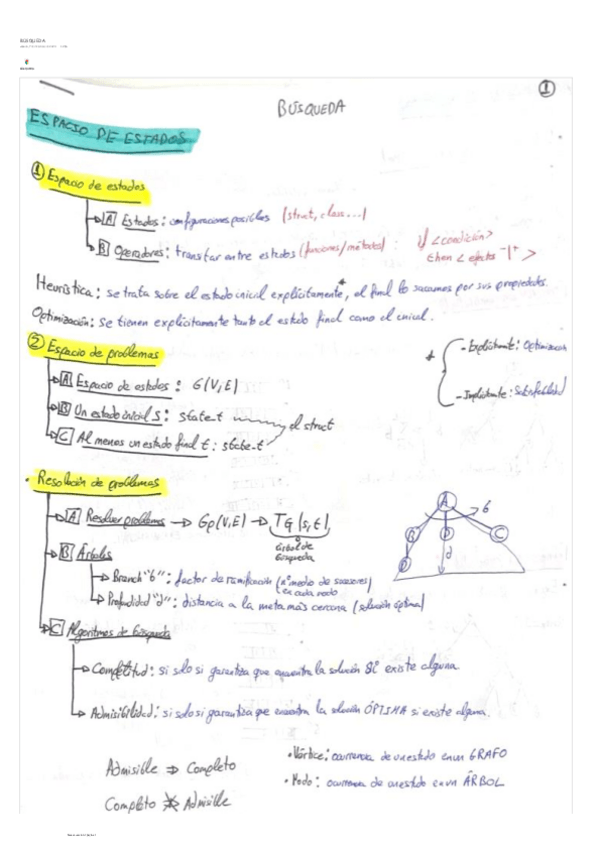 BÚSQUEDA
1
BÚSQUEDA
ESPACIO DE ESTADOS
1 Espacio de estados
A Estados: configuraciones posibles (struct, class...)
B Operadores: transitar entre estados (funciones/métodos) : if <condición>
then < efectos -|+ >
Heurística: se trata sobre el estado inicial explícitamente*, el final lo sacamos por sus propiedades.
Optimización: se tienen explícitamente tanto el estado final como el inicial.
2 Espacio de problemas
* - Explícitamente: Optimización
- Implícitamente: Satisfabilidad
A Espacio de estados: G(V,E)
B Un estado inicial s: state-t
el struct
C Al menos un estado final t: state-t
• Resolución de problemas
A Resolver problemas → Gp(V,E) → TG |s,t|
árbol de
búsqueda
A b
B D C
D d
B Árboles
Branch "b": factor de ramificación (nº medio de sucesores)
en cada nodo
Profundidad "d": distancia a la meta más cercana (solución óptima)
C Algoritmos de búsqueda
Completitud: si solo si garantiza que encuentra la solución SI existe alguna.
Admisibilidad: si solo si garantiza que encuentra la solución ÓPTIMA si existe alguna.
Admisible ⇒ Completo
Completo ⇏ Admisible
• Vértice: ocurrencia de un estado en un GRAFO
• Nodo: ocurrencia de un estado en un ÁRBOL